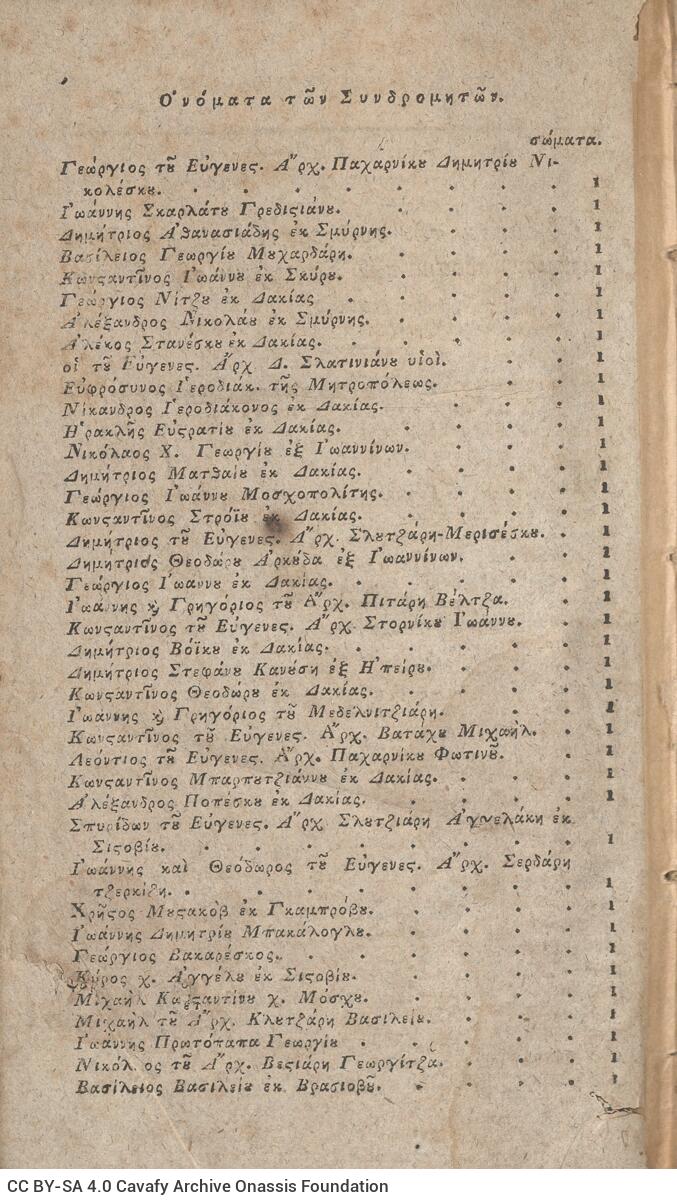 Ὀνόματα τῶν Συνδρομητῶν.
σώματα.
Γεώργιος τȣ͂ Εὐγενες. Ἄρχ. Παχαρνίκȣ Δημητρίȣ Νι-
κολέσκȣ. 1
Ἰωάννης Σκαρλάτȣ Γρεδιϛιάνȣ. 1
Δημήτριος Ἀθανασιάδης ἐκ Σμύρνης. 1
Βασίλειος Γεωργίȣ Μȣχαρδάρη. 1
Κωνϛαντῖνος Ἰωάννȣ ἐκ Σκύρȣ. 1
Γεώργιος Νίτζȣ ἐκ Δακίας 1
Ἀλέξανδρος Νικολάȣ ἐκ Σμύρνης. 1
Ἀλέκος Στανέσκȣ ἐκ Δακίας. 1
οἱ τȣ͂ Εὐγενες. Ἄρχ Δ. Σλατινιάνȣ υἱοί. 1
Εὐφρόσυνος Ἱεροδιάκ. τῆς Μητροπόλεως. 1
Νίκανδρος Ἱεροδιάκονος ἐκ Δακίας. 1
Ἡρακλῆς Εὐϛρατίȣ ἐκ Δακίας. 1
Νικόλαος Χ. Γεωργίȣ ἐξ Ἰωαννίνων. 1
Δημήτριος Ματθαίȣ ἐκ Δακίας. 1
Γεώργιος Ἰωάννȣ Μοσχοπολίτης. 1
Κωνϛαντῖνος Στρόϊȣ ἐκ Δακίας. 1
Δημήτριος τȣ͂ Εὐγενες. Ἄρχ. Σλȣτζάρη-Μερισέσκȣ. 1
Δημήτριος Θεοδώρȣ Ἀρκȣ́δα ἐξ Ἰωαννίνων. 1
Γεώργιος Ἰωάννȣ ἐκ Δακίας. 1
Ἰωάννης ϗ̀ Γρηγόριος τȣ͂ Ἄρχ. Πιτάρη Βέλτζα. 1
Κωνϛαντῖνος τȣ͂ Εὐγενες. Ἄρχ Στορνίκȣ Ἰωάννȣ. 1
Δημήτριος Βόϊκȣ ἐκ Δακίας. 1
Δημήτριος Στεφάνȣ Κανȣ́ση ἐξ Ἠπείρȣ. 1
Κωνϛαντῖνος Θεοδώρȣ ἐκ Δακίας. 1
Ἰωάννης ϗ̀ Γρηγόριος τȣ͂ Μεδελνιτζιάρη. 1
Κωνϛαντῖνος τȣ͂ Εὐγενες. Ἄρχ. Βατάχȣ Μιχαήλ. 1
Λεόντιος τȣ͂ Εὐγενες. Ἄρχ. Παχαρνίκȣ Φωτινȣ͂. 1
Κωνϛαντῖνος Μπαρπȣτζιάννȣ ἐκ Δακίας. 1
Ἀλέξανδρος Ποπέσκȣ ἐκ Δακίας. 1
Σπυρίδων τȣ͂ Εὐγενες. Ἄρχ Σλȣτζιάρη Ἀγγελάκη ἐκ
Σιϛοβίȣ. 1
Ἰωάννης καὶ Θεόδωρος τȣ͂ Εὐγενες. Ἄρχ. Σερδάρη
τζερκέζη. 1
Χρῆϛος Μȣϛακὸβ ἐκ Γκαμπρόβȣ. 1
Ἰωάννης Δημητρίȣ Μπακάλογλȣ. 1
Γεώργιος Βακαρέσκος. 1
Κύρος χ. Ἀγγέλȣ ἐκ Σιϛοβίȣ. 1
Μιχαὴλ Κωνϛαντίνȣ χ. Μόσχȣ. 1
Μιχαὴλ τȣ͂ Ἄρχ. Κλȣτζάρη Βασιλείȣ. 1
Ἰωάννης Πρωτόπαπα Γεωργίȣ 1
Νικόλ ος τȣ͂ Ἄρχ. Βεϛιάρη Γεωργίτζα. 1
Βασίλειος Βασιλείȣ ἐκ Βρασιοβȣ͂. 1
CC BY-SA 4.0 Cavafy Archive Onassis Foundation